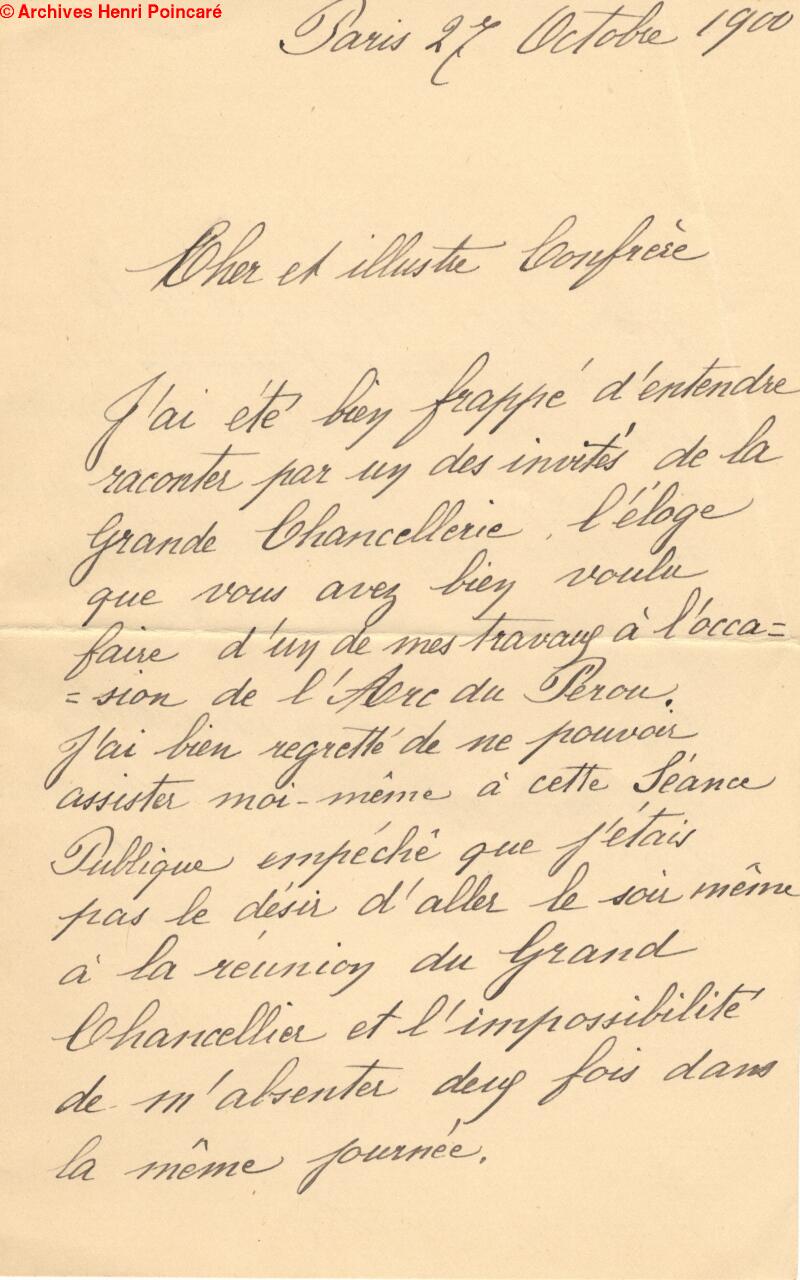 © Archives Henri Poincaré
Paris 27 Octobre 1900
Cher et illustre Confrère
J'ai été bien frappé d'entendre
raconter par un des invités de la
Grande Chancellerie, l'éloge
que vous avez bien voulu
faire d'un de mes travaux à l'occa=
=sion de l'Arc du Pérou.
J'ai bien regretté de ne pouvoir
assister moi-même à cette Séance
Publique empéché que j'étais
pas le désir d'aller le soir même
à la réunion du Grand
Chancellier et l'impossibilité
de m'absenter deux fois dans
la même journée.